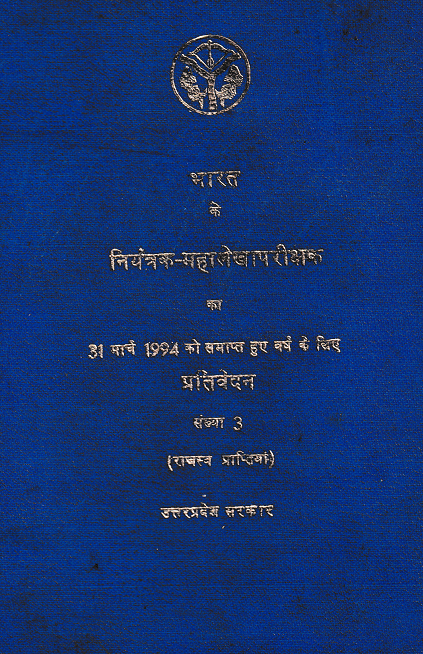 भारत
के
नियंत्रक-महालेखापरीक्षक
का
31 मार्च 1994 को समाप्त हुए वर्ष के लिए
प्रतिवेदन
संख्या 3
(राजस्व प्राप्तियां)
उत्तरप्रदेश सरकार